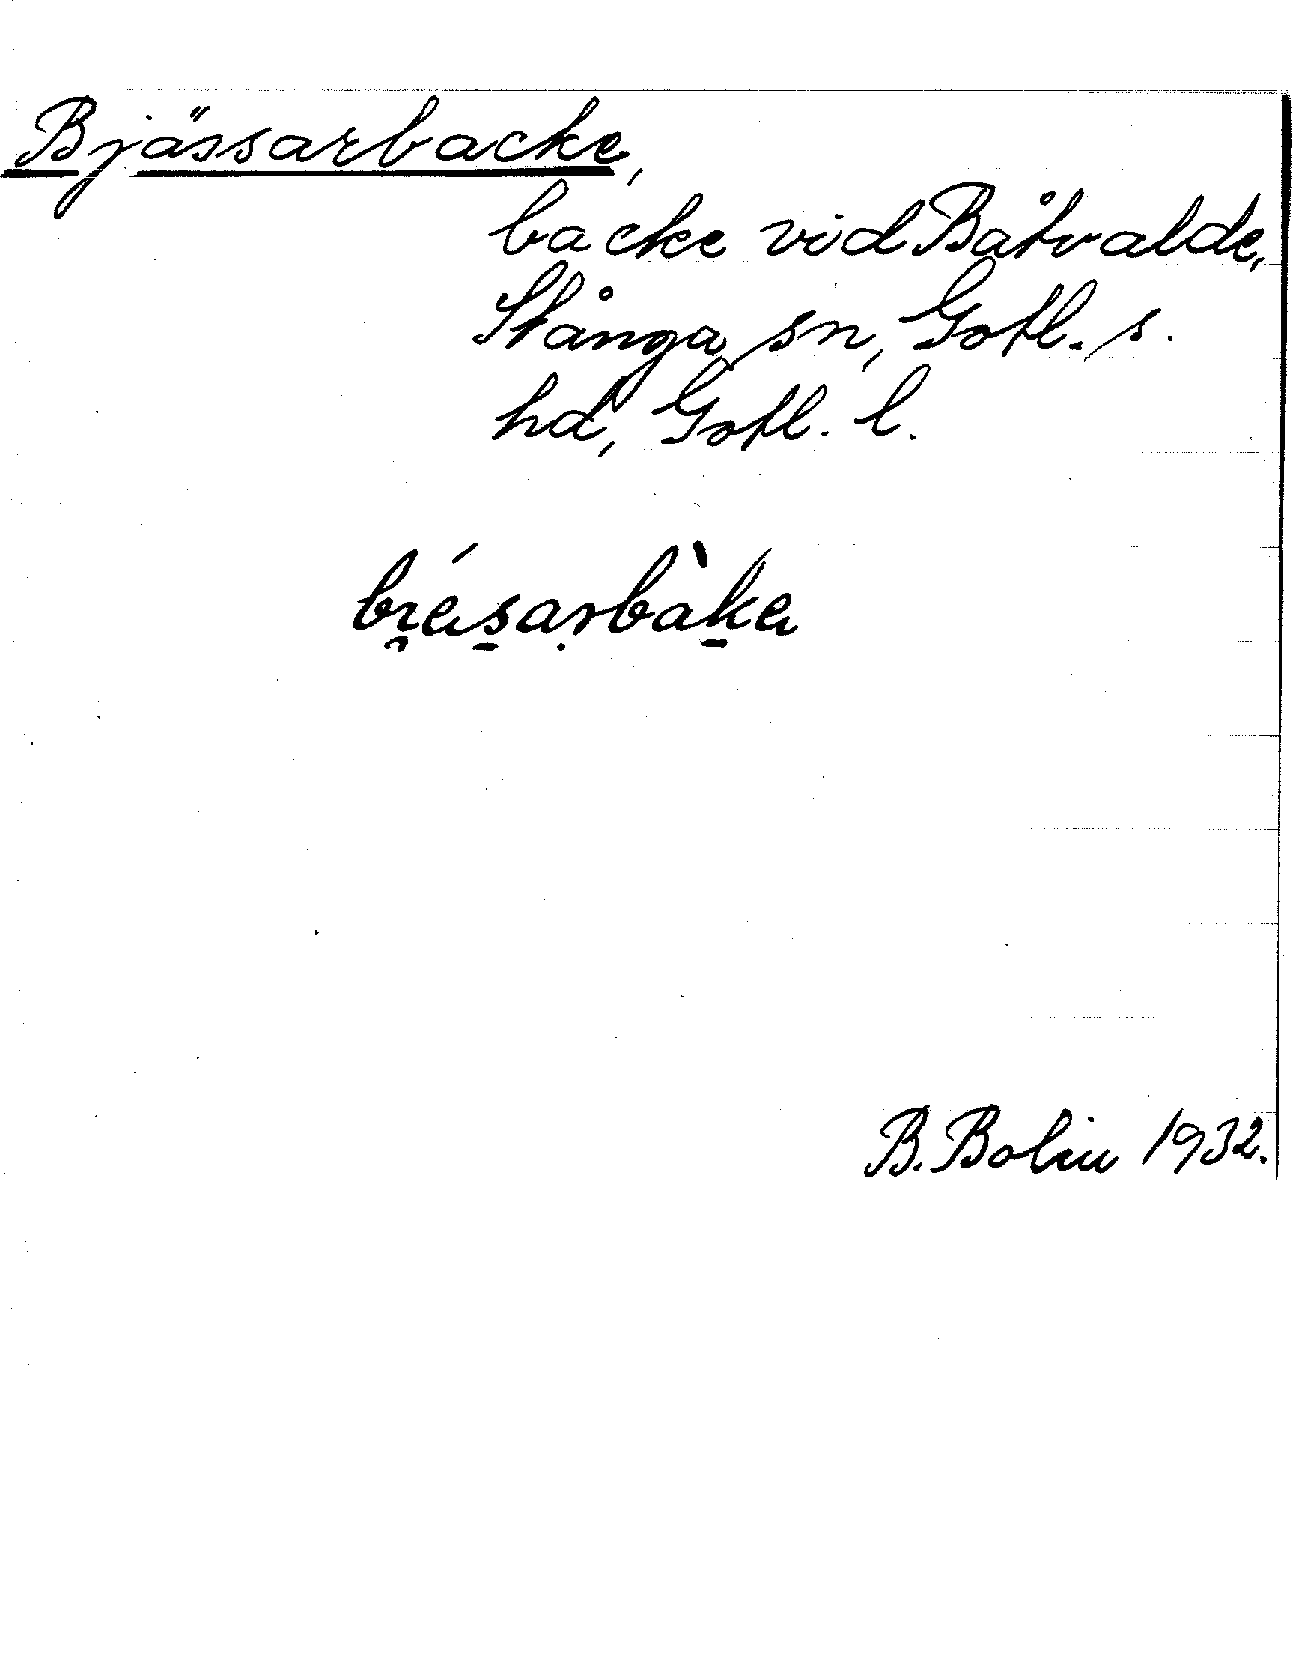 Bjässarbacke,
backe vid Båtvalde,
Stånga sn, Gotl. s.
hd, Gotl. l.
B. Bolin 1932.